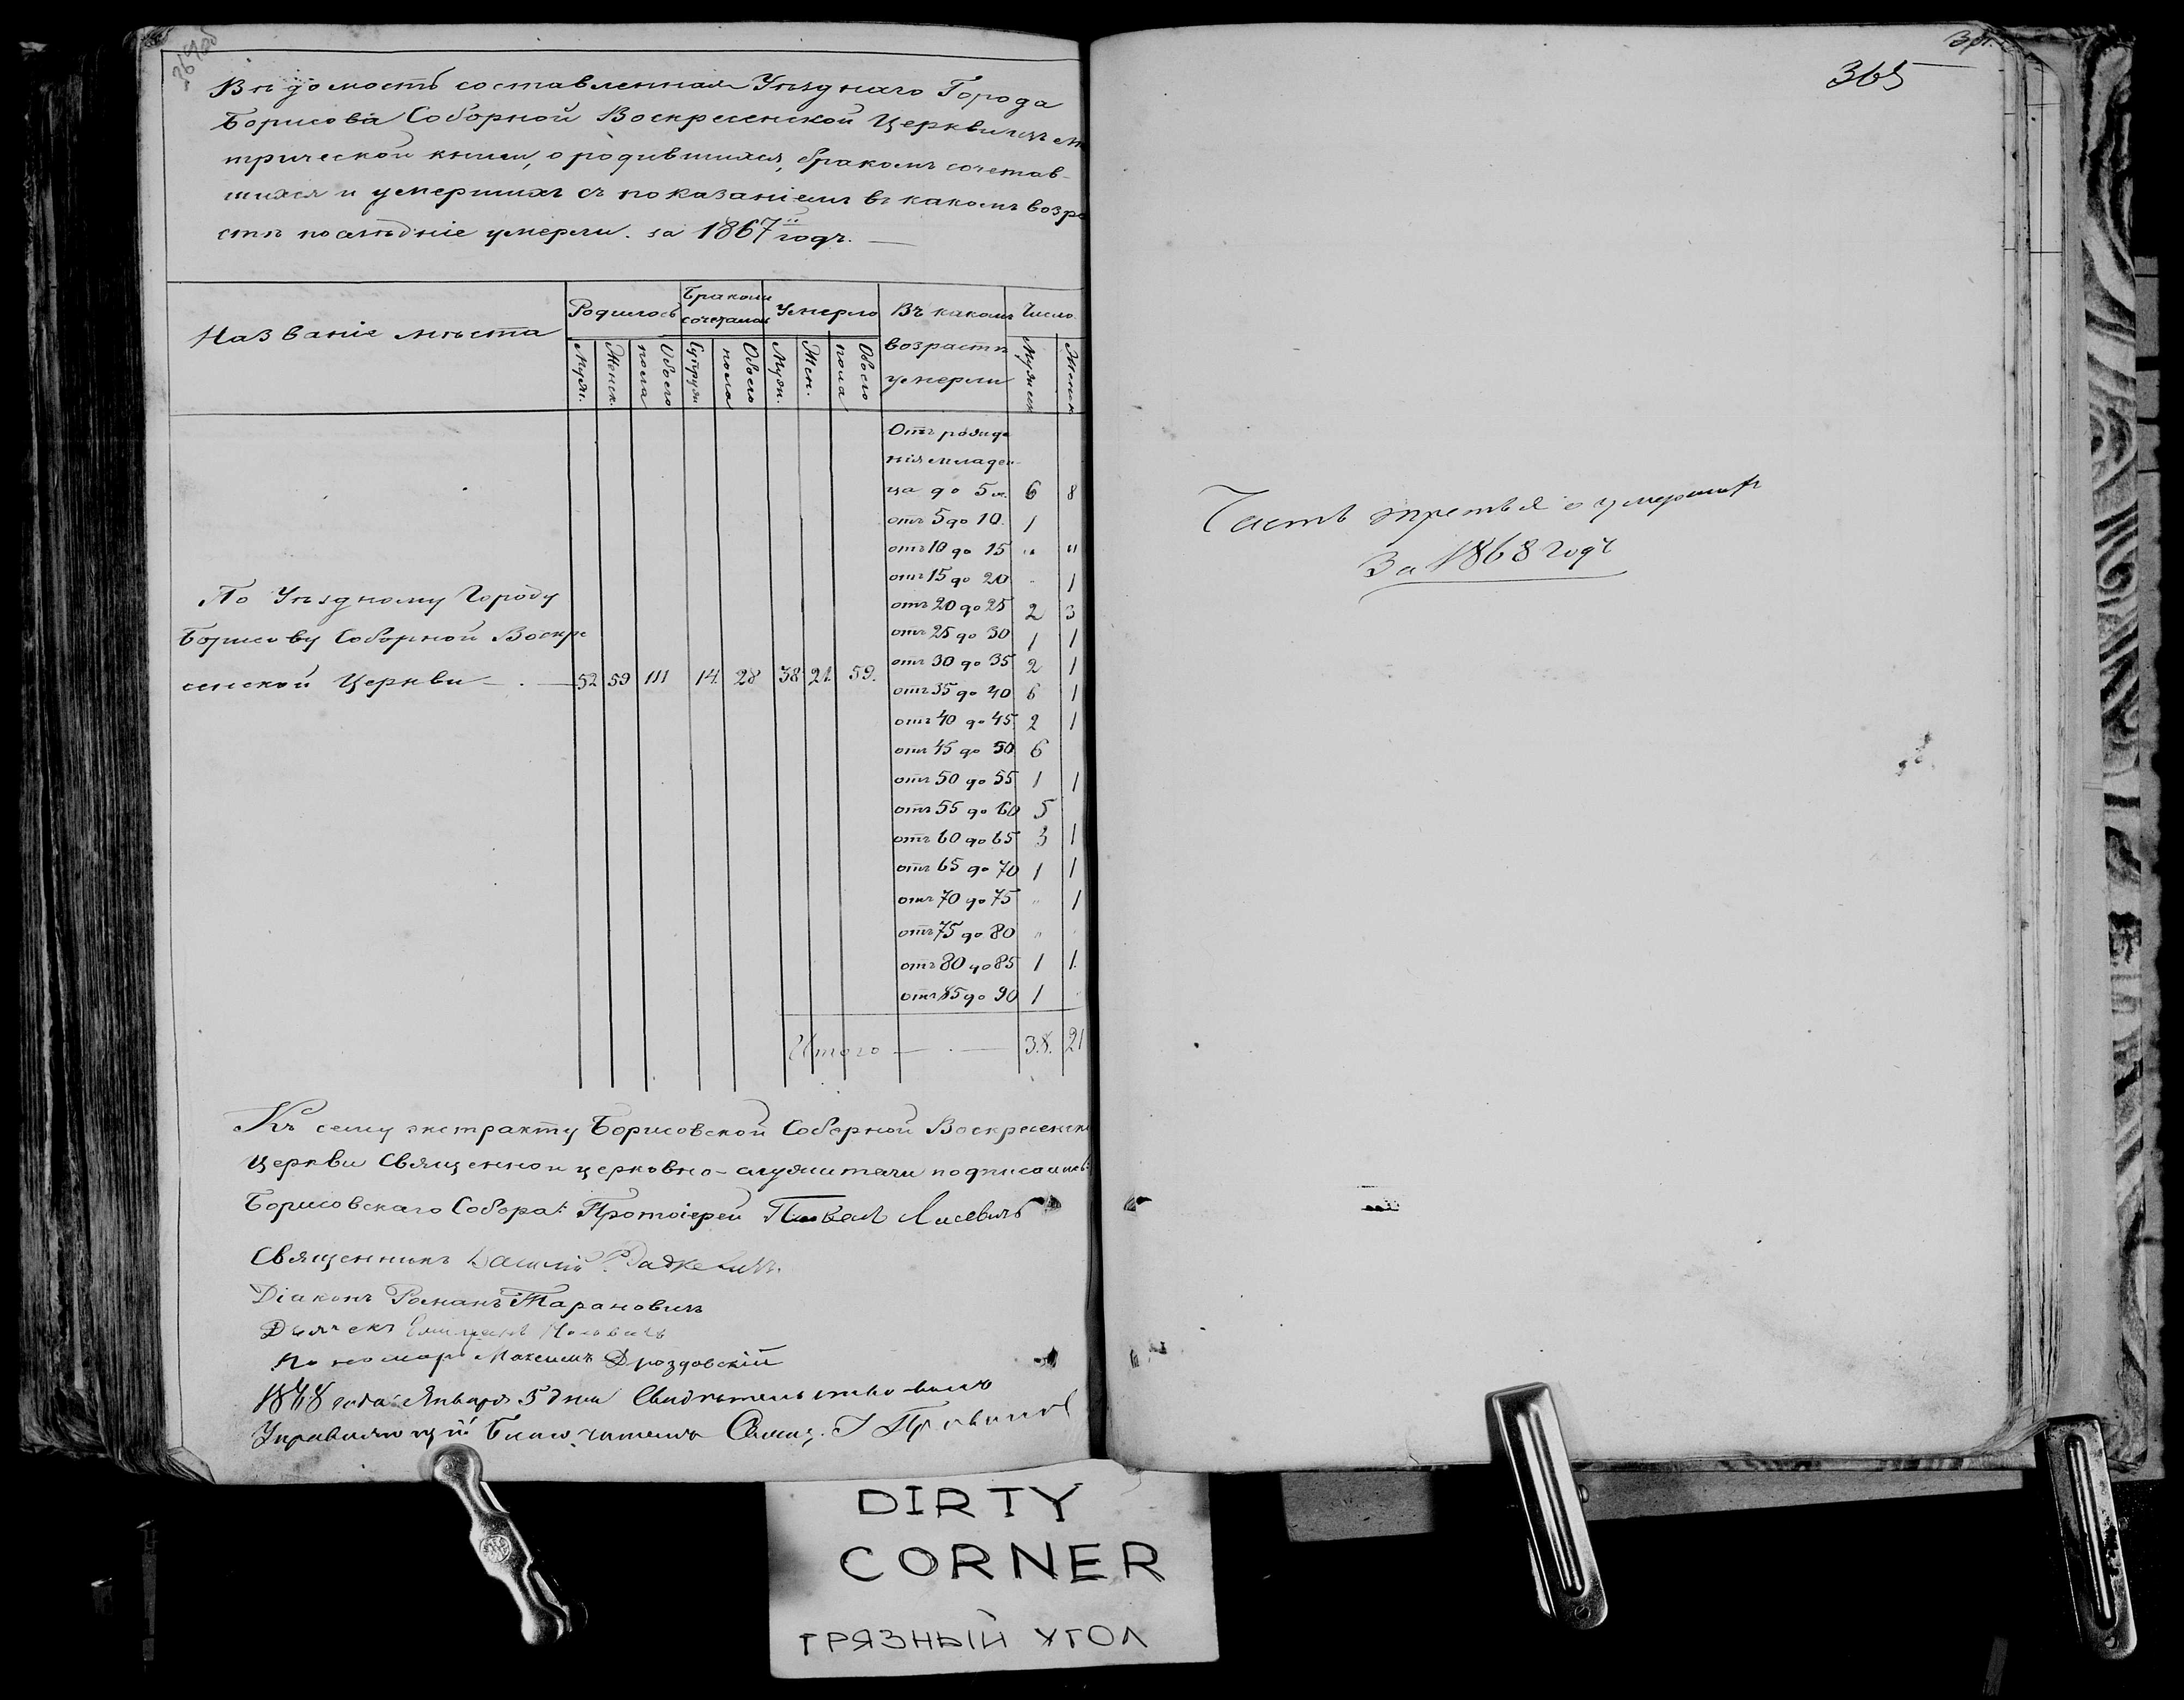 364об
Вѣдомость составленная Уѣзднаго Города
Борисова Соборной Воскресенской Церкви изъ ме
трической книги, о родившихся, бракомъ сочетав-
шихся и умершихъ съ показаніемъ въ какомъ возра
стѣ послѣдніе умерли. за 1867й годъ. —
Названіе мѣста
Родилось
Бракомъ сочеталось
Умерло
Въ какомъ возрастѣ умерли
Число
Мужс.
Женск.
Обоего пола
Супруж.
Обоего пола
Мужс.
Жен.
Обоего пола
Мужск
Женск
Отъ рожде
нія младен-
ца до 5 л. 6 8
отъ 5 до 10. 1
отъ 10 до 15 " "
отъ 15 до 20 " 1
отъ 20 до 25 2 3
отъ 25 до 30 1 1
отъ 30 до 35 2 1
отъ 35 до 40 6 1
отъ 40 до 45 2 1
отъ 45 до 50 6
отъ 50 до 55 1 1
отъ 55 до 60 5
отъ 60 до 65 3 1
отъ 65 до 70 1 1
отъ 70 до 75 " 1
отъ 75 до 80 " "
отъ 80 до 85 1 1.
отъ 85 до 90 1
Итого — . — 38. 21
По Уѣздному Городу
Борисову Соборной Воскре
сенской Церкви — . — 52 59 111 14. 28 38 21. 59.
Къ сему экстракту Борисовской Соборной Воскресенск
Церкви Священно и церковно-служители подписались:
Борисовскаго Собора: Протоіерей Павелъ Лисевичъ
Священникъ Василій
Діаконъ Романъ Тарановичъ
Дьячекъ
Пономарь Максимъ Дроздовскій
1868 года Января 5 дня Свидѣтельствовалъ
Управляющій Благочиніемъ Свящ. І
365
Часть третья о умершихъ
За 1868 годъ
DIRTY
CORNER
ГРЯЗНЫЙ УГОЛ